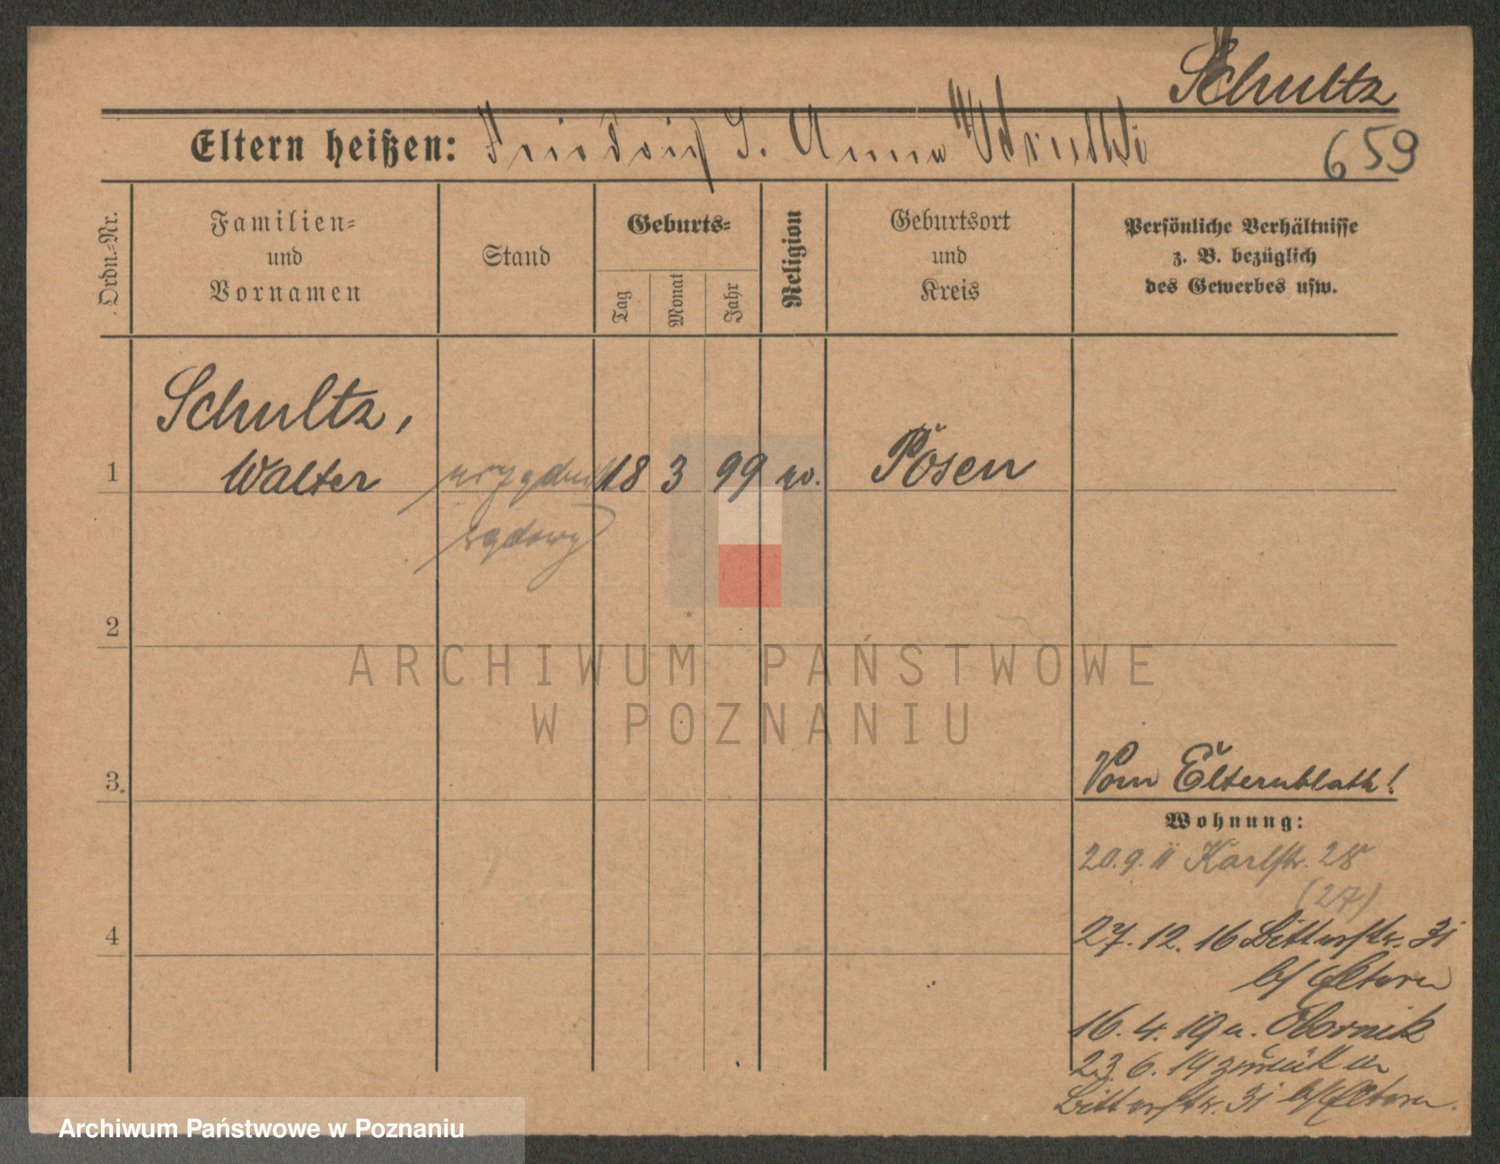 Schultz
Eltern heißen: Friedrich J. Anna
659
Ordn.-Nr.
Familien-
und
Vornamen
Stand
Geburts-
Tag
Monat
Jahr
Religion
Geburtsort
und
Kreis
Persönliche Verhältnisse
z. B. bezüglich
des Gewerbes usw.
Schultz,
1 Walter 18 3 99 Posen
2
3.
4
Vom Elternblatt!
Wohnung:
20.9. 11 Karlstr. 28
(27)
27. 12. 16 Bitterstr. 31
b/ Eltern
16. 4. 19 n. Obornik
23. 6. 19 zurück n
Bitterstr. 31 b/ Eltern.
ARCHIWUM PAŃSTWOWE
W POZNANIU
Archiwum Państwowe w Poznaniu